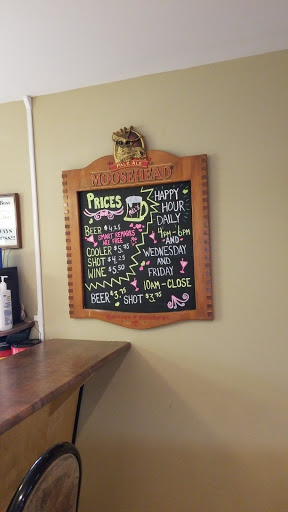 PALE ALE
MOOSEHEAD
PRICES
BEER $4.25
SMART REMARKS
ARE FREE
COOLER $5.75
SHOT $4.25
WINE $5.50
HAPPY
HOUR
DAILY
4PM-6PM
-AND-
WEDNESDAY
AND
FRIDAY
10AM-CLOSE
BEER $3.75 SHOT $3.75
Boss